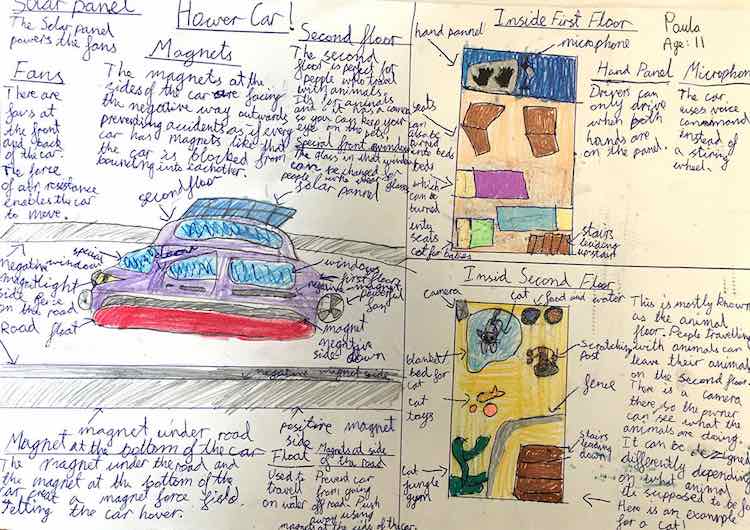 Solar panel
The Solar panel
powers the fans
Hower Car!
Fans
There are
fans at
the front
and back
of the car.
The force
of air resistance
enables the car
to move.
Magnets
The magnets at the
sides of the car are facing
the negative way outwards
preventing accidents as if every
car has magnets like that
the car is blocked from
bouncing into eachother.
Second floor
The second
floor is perfect for
people who travel
with animals.
It's for animals
and it has a camera
so you can keep your
eye on the pets.
Special front window
the glass in that window
can be changed for
people who need glasses
solar pannel
second floor
special
window
door
light
windows
first floor
powerful
fan
negative
magnet
side face
on the road
Road
float
magnet
negative
side down
negative magnet side
magnet under road
positive magnet
side
Magnet at the bottom of the car
The magnet under the road and
the magnet at the bottom of the
car creat a magnet force field
letting the car hover.
Float
Used to
travell
on water
Magnets at side
of the road
Prevent car
from going
off road. Push
away using
magnets at the sides of the car.
Inside First Floor
Paula
Age: 11
hand pannel
microphone
seats
can
also be
turned
into beds
beds
which
can be
turned
into
seats
cot for babies
stairs
leading
upstairs
Hand Panel
Drivers can
only drive
when both
hands are
on the panel.
Microphone
The car
uses voice
command
instead of
a stiring
wheel.
Insid Second Floor
camera
cat
food and water
scratching
post
blanket/
bed for
cat
cat
toys
fence
Stairs
leading
down
cat
jungle
gym
This is mostly known
as the animal
floor. People travelling
with animals can
leave their animals
on the second floor.
There is a camera
there so the owner
can see what the
animals are doing.
It can be dezigned
differently depending
on what animal
its supposed to be for
Here is an example
for a cat